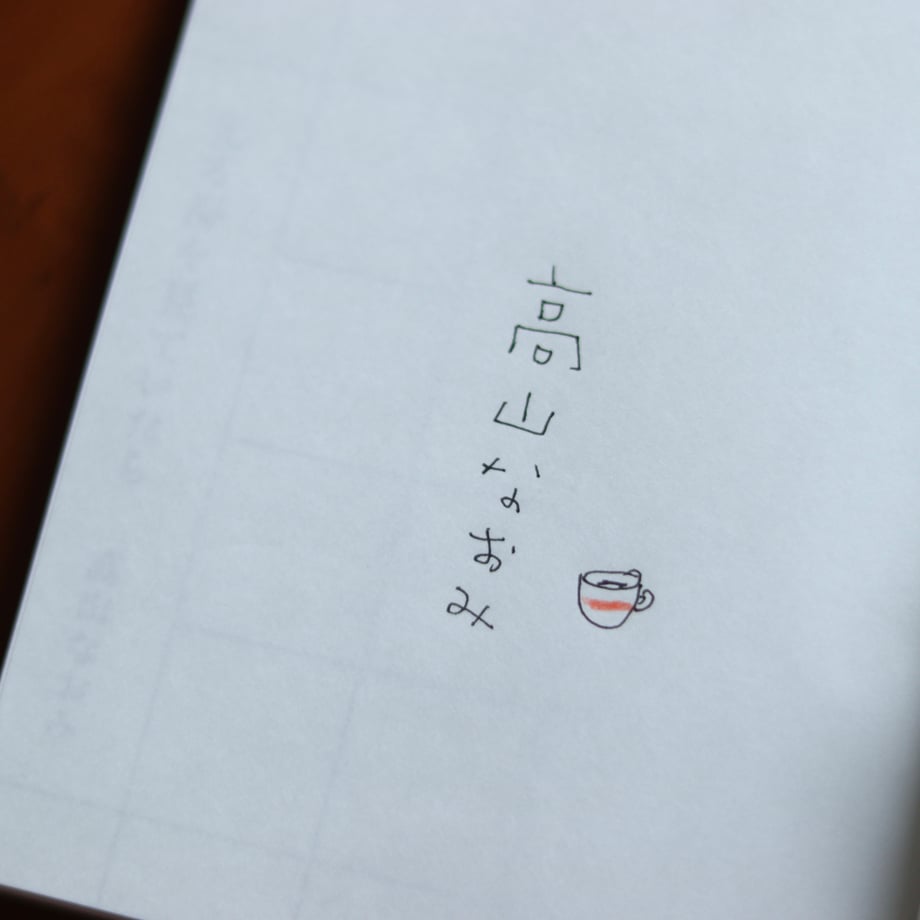 高山なおみ